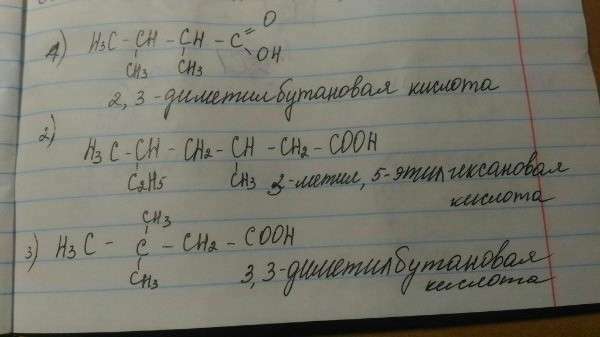 1) H₃C - CH - CH - C = O
OH
CH₃ CH₃
2,3-диметилбутановая кислота
2)
H₃C - CH - CH₂ - CH - CH₂ - COOH
C₂H₅ CH₃
3-метил, 5-этилгексановая
кислота
CH₃
3) H₃C - C - CH₂ - COOH
CH₃
3,3-диметилбутановая
кислота